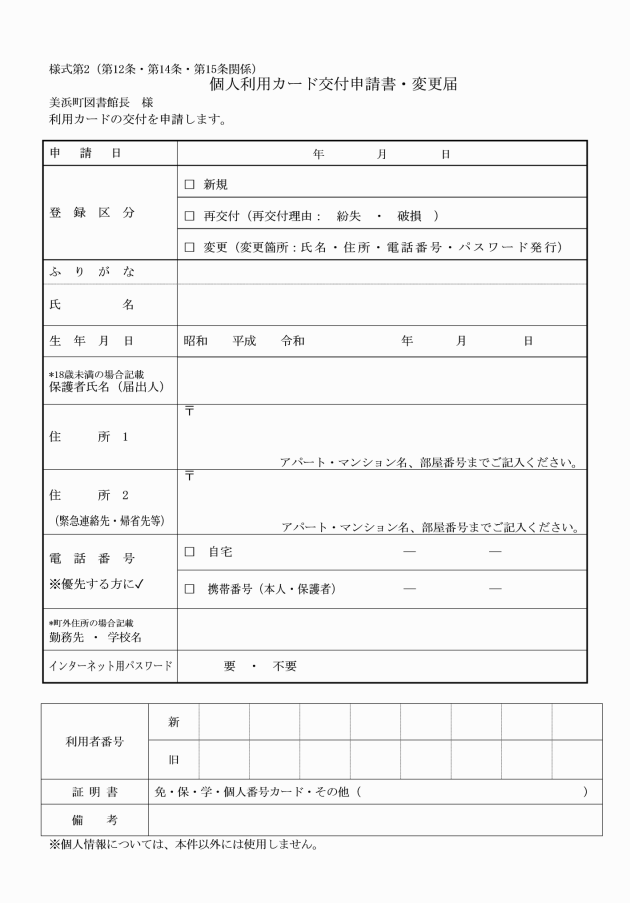 様式第2（第12条・第14条・第15条関係）
個人利用カード交付申請書・変更届
美浜町図書館長　様
利用カードの交付を申請します。
申　請　日　　年　　月　　日
登　録　区　分
□ 新規
□ 再交付（再交付理由：　紛失　・　破損　）
□ 変更（変更箇所：氏名・住所・電話番号・パスワード発行）
ふ　り　が　な
氏　　　名
生　年　月　日　昭和　平成　令和　　年　　月　　日
*18歳未満の場合記載
保護者氏名（届出人）
住　　所　1
〒
アパート・マンション名、部屋番号までご記入ください。
住　　所　2
（緊急連絡先・帰省先等）
〒
アパート・マンション名、部屋番号までご記入ください。
電　話　番　号
※優先する方に✓
□　自宅　　―　　―
□　携帯番号（本人・保護者）　　―　　―
*町外住所の場合記載
勤務先 ・ 学校名
インターネット用パスワード　要　・　不要
利用者番号
新
旧
証 明 書　免・保・学・個人番号カード・その他（　　　）
備　　考
※個人情報については、本件以外には使用しません。